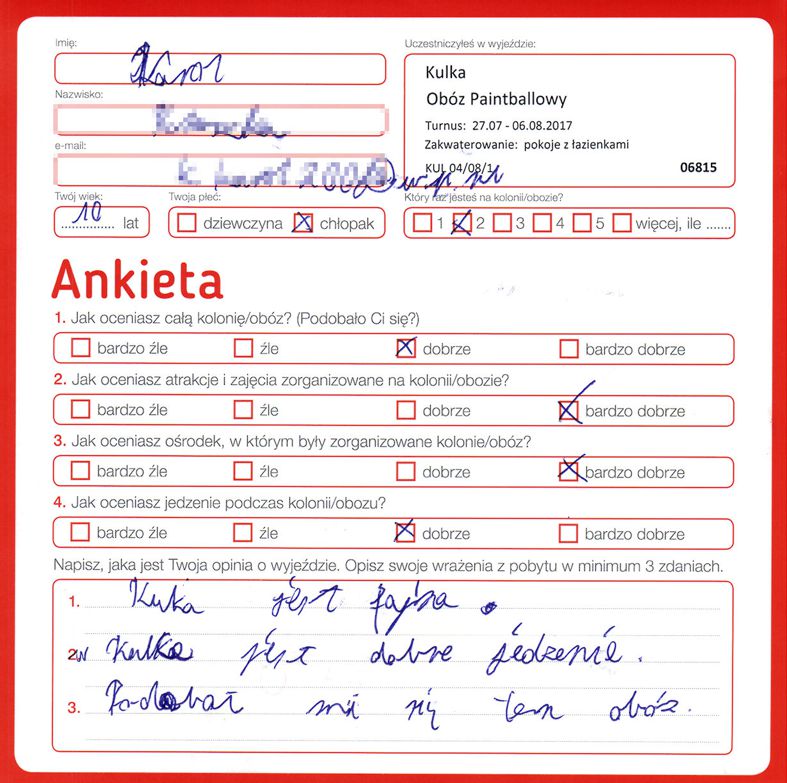 Imię:
Karol
Uczestniczyłeś w wyjeździe:
Kulka
Obóz Paintballowy
Turnus: 27.07 - 06.08.2017
Zakwaterowanie: pokoje z łazienkami
KUL 04/08/1
06815
Nazwisko:
e-mail:
@wp.pl
Twój wiek:
10 lat
Twoja płeć:
dziewczyna chłopak
Który raz jesteś na kolonii/obozie?
1 2 3 4 5 więcej, ile .......
Ankieta
1. Jak oceniasz całą kolonię/obóz? (Podobało Ci się?)
bardzo źle źle dobrze bardzo dobrze
2. Jak oceniasz atrakcje i zajęcia zorganizowane na kolonii/obozie?
bardzo źle źle dobrze bardzo dobrze
3. Jak oceniasz ośrodek, w którym były zorganizowane kolonie/obóz?
bardzo źle źle dobrze bardzo dobrze
4. Jak oceniasz jedzenie podczas kolonii/obozu?
bardzo źle źle dobrze bardzo dobrze
Napisz, jaka jest Twoja opinia o wyjeździe. Opisz swoje wrażenia z pobytu w minimum 3 zdaniach.
1. Kulka jest fajna.
2. w Kulka jest dobre jedzenie.
3. Podobał mi się ten obóz.